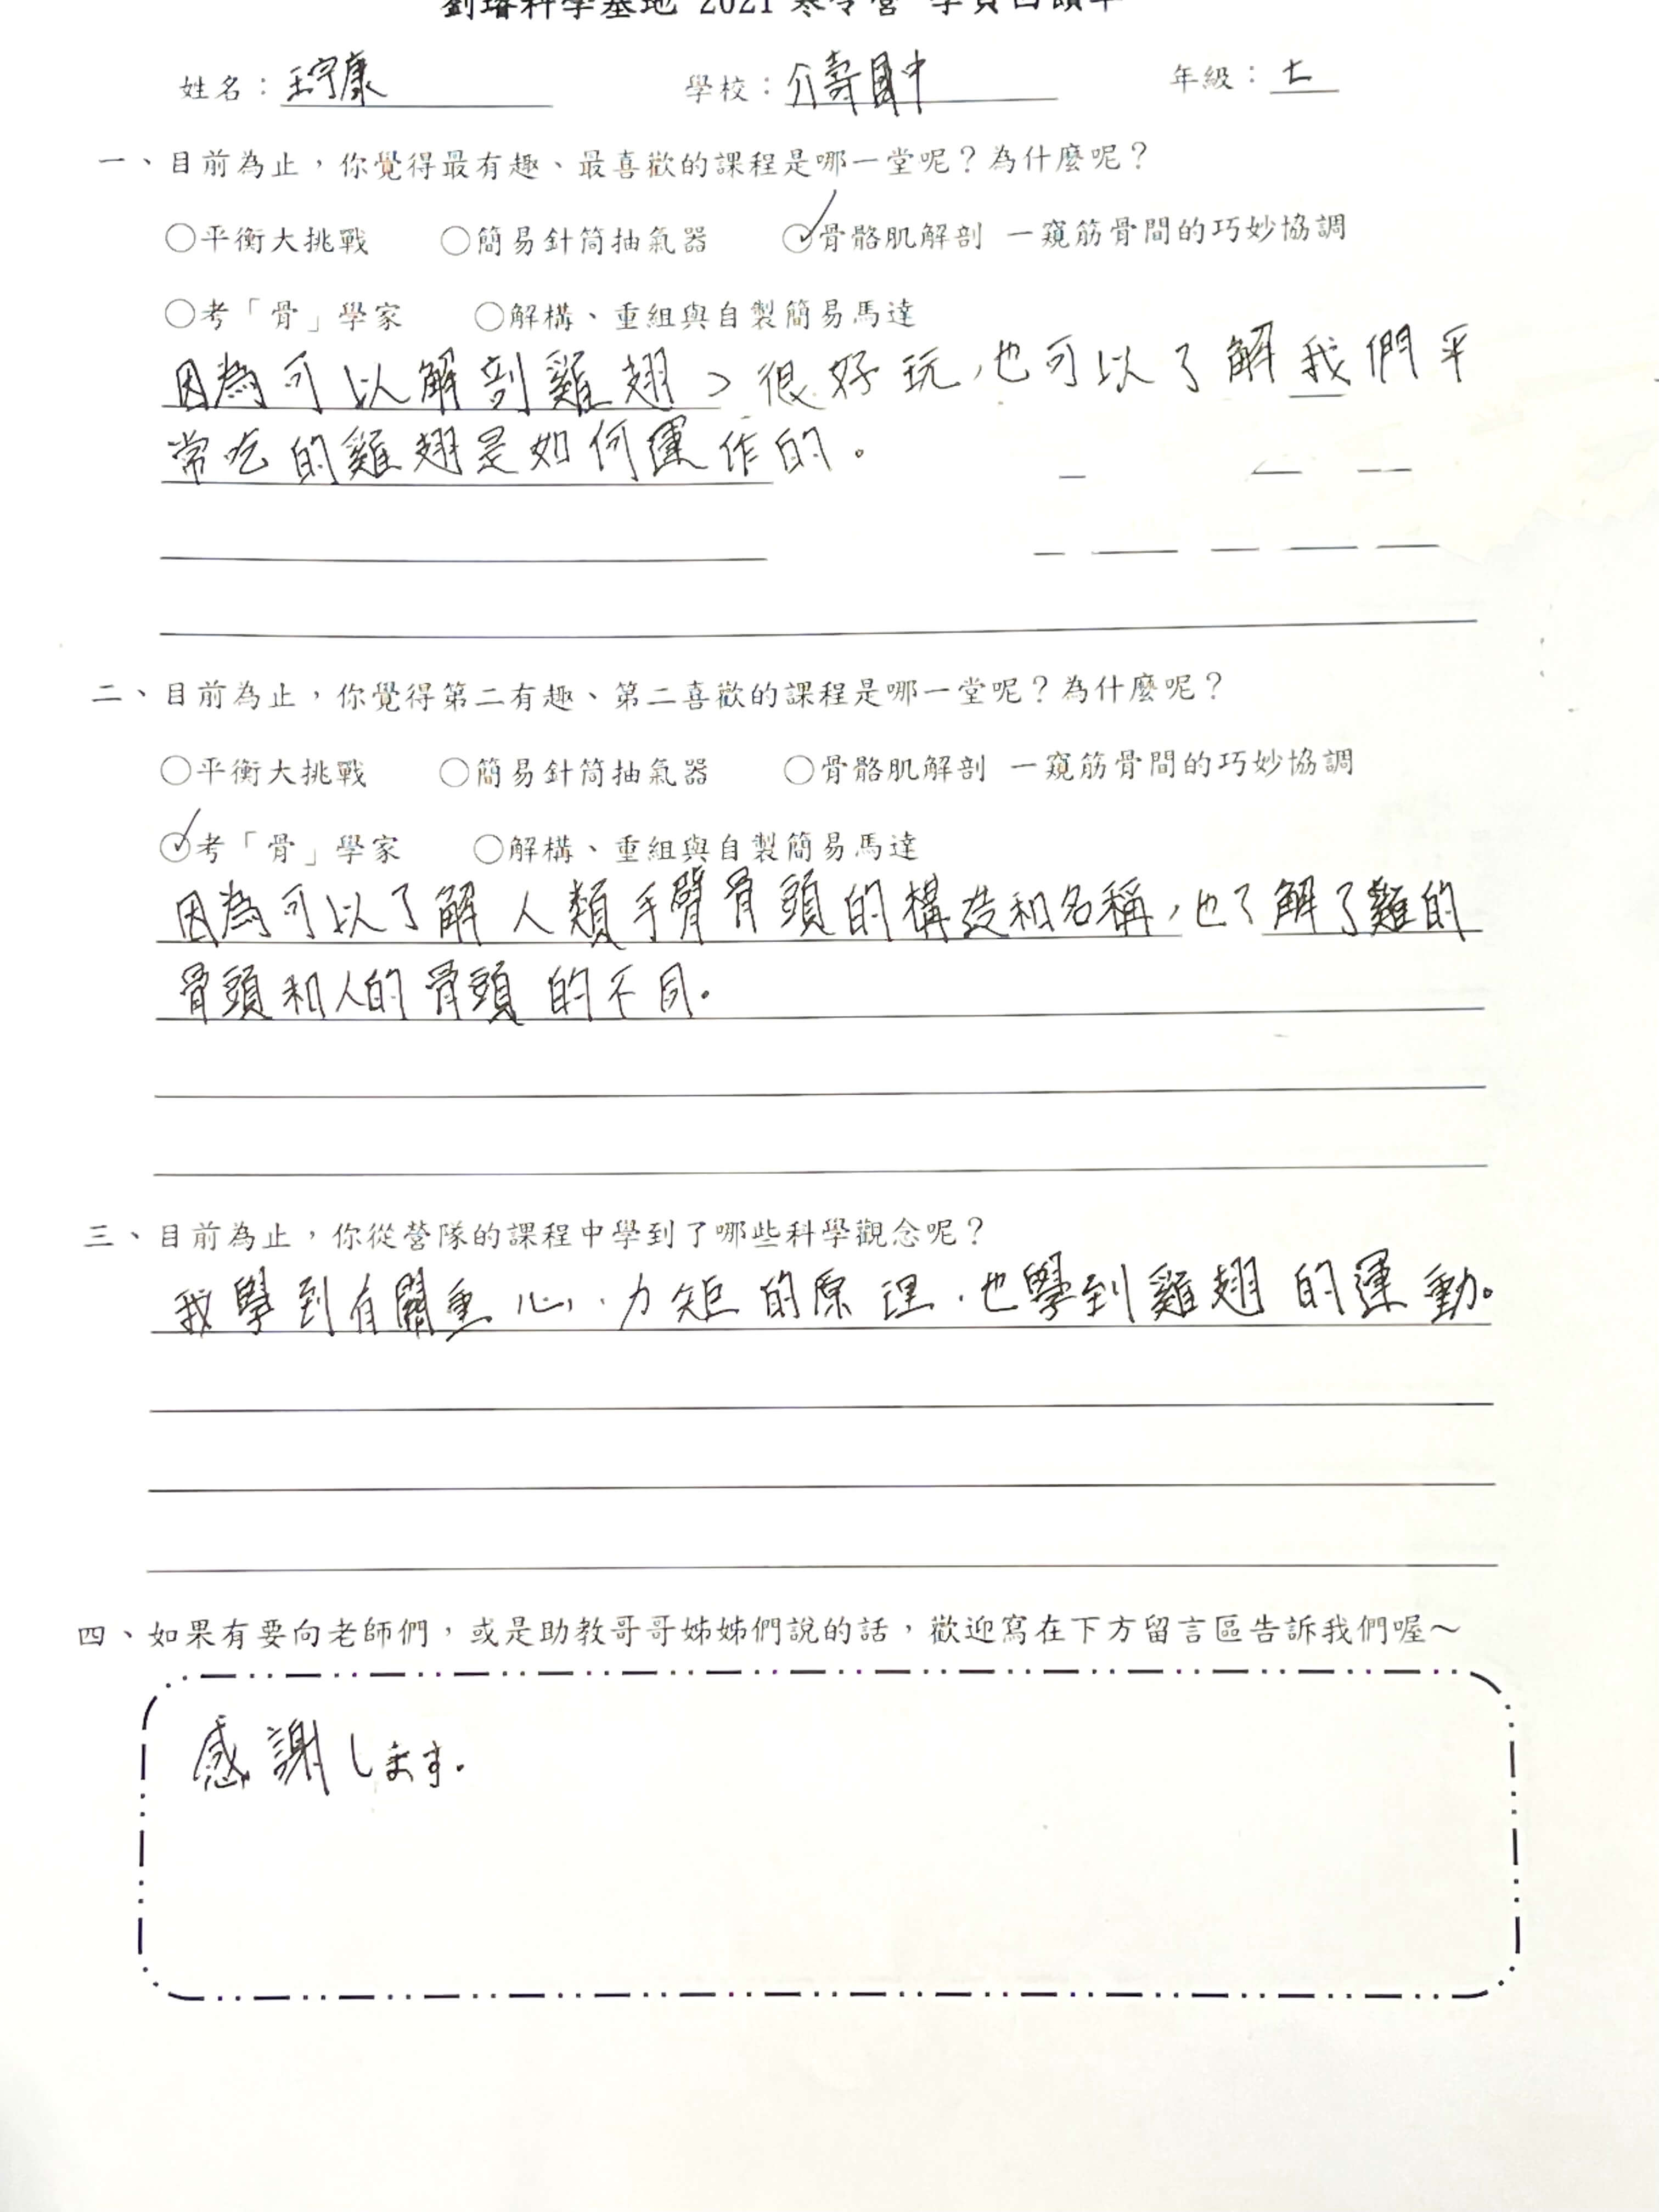 劉璿科學基地 2021 寒令營 學員回饋單
姓名：王宇康 學校：介壽國中 年級：七
一、目前為止，你覺得最有趣、最喜歡的課程是哪一堂呢？為什麼呢？
○平衡大挑戰 ○簡易針筒抽氣器 ○骨骼肌解剖 一窺筋骨間的巧妙協調
○考「骨」學家 ○解構、重組與自製簡易馬達
因為可以解剖雞翅，很好玩，也可以了解我們平
常吃的雞翅是如何運作的。
二、目前為止，你覺得第二有趣、第二喜歡的課程是哪一堂呢？為什麼呢？
○平衡大挑戰 ○簡易針筒抽氣器 ○骨骼肌解剖 一窺筋骨間的巧妙協調
○考「骨」學家 ○解構、重組與自製簡易馬達
因為可以了解人類手臂骨頭的構造和名稱，也了解了雞的
骨頭和人的骨頭的不同。
三、目前為止，你從營隊的課程中學到了哪些科學觀念呢？
我學到有關重心、力矩的原理，也學到雞翅的運動。
四、如果有要向老師們，或是助教哥哥姊姊們說的話，歡迎寫在下方留言區告訴我們喔～
感謝します.